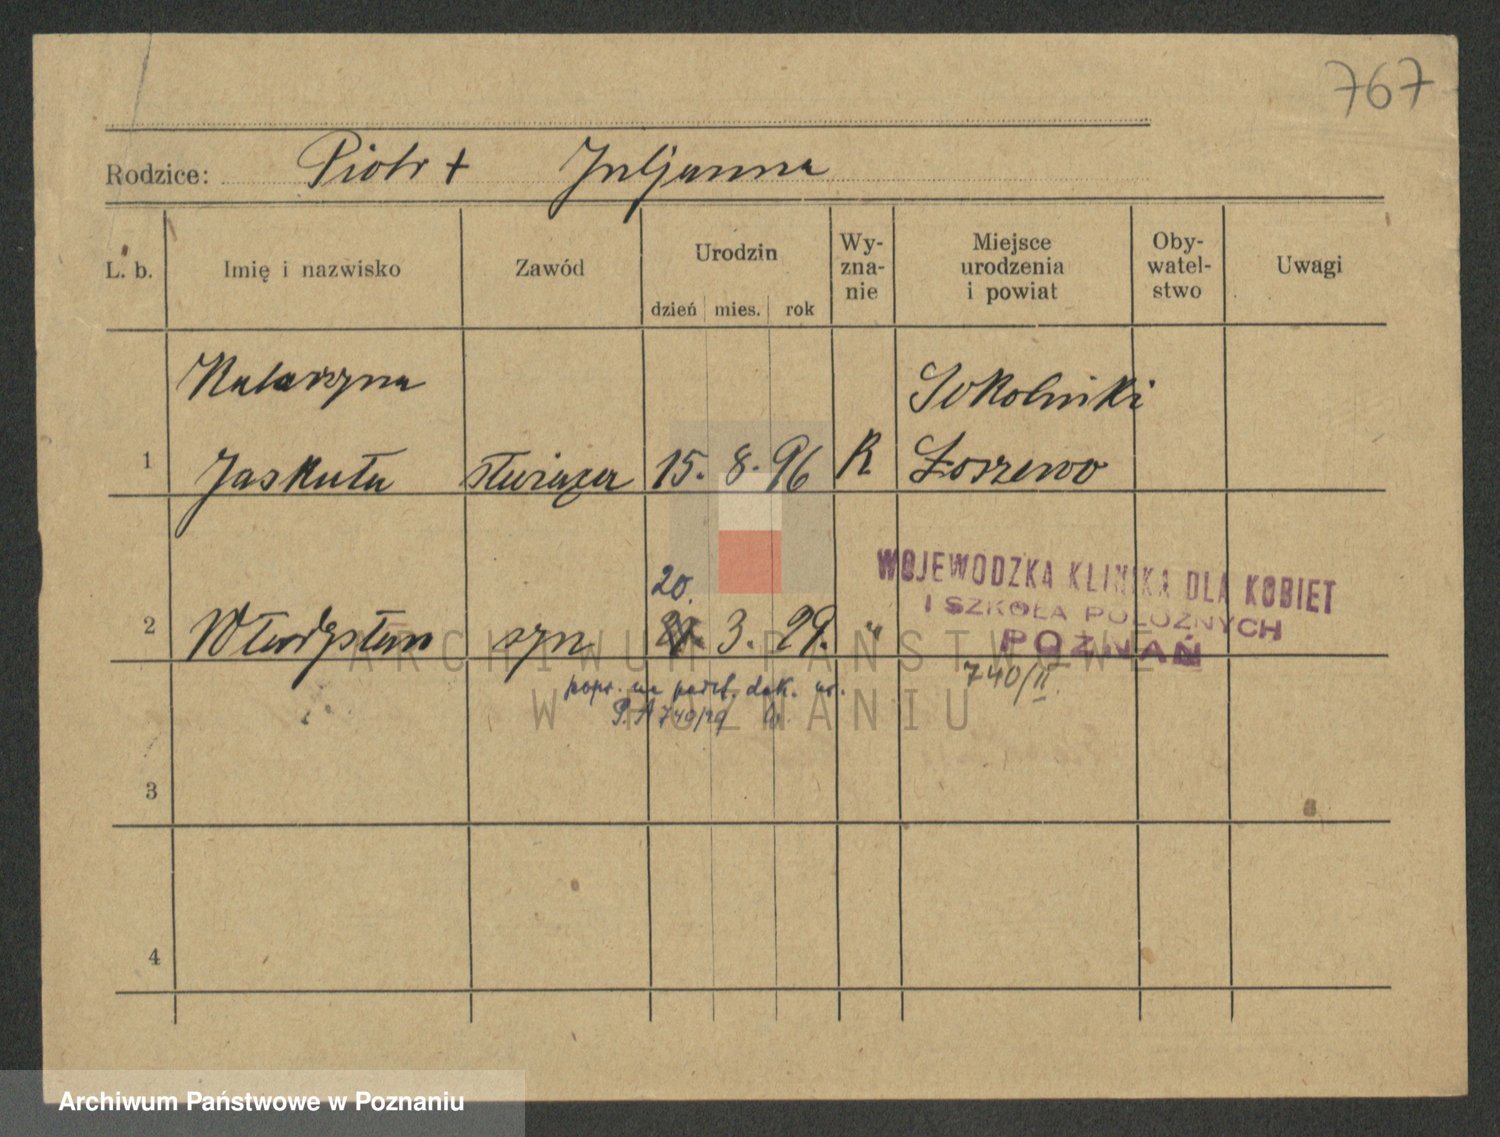 767
Rodzice: Piotr + Juljanna
L. b. Imię i nazwisko Zawód Urodzin dzień mies. rok Wy-zna-nie Miejsce urodzenia i powiat Oby-watel-stwo Uwagi
Katarzyna Sokolniki
1 Jaskuła służąca 15. 8. 96 R
20.
2 Władysław syn 3. 29. "
WOJEWODZKA KLINIKA DLA KOBIET
I SZKOŁA POŁOŻNYCH
POZNAŃ
740/II.
popr. na podst. dok. ur.
P.A 740/29
3
4
ARCHIWUM PAŃSTWOWE
W POZNANIU
Archiwum Państwowe w Poznaniu